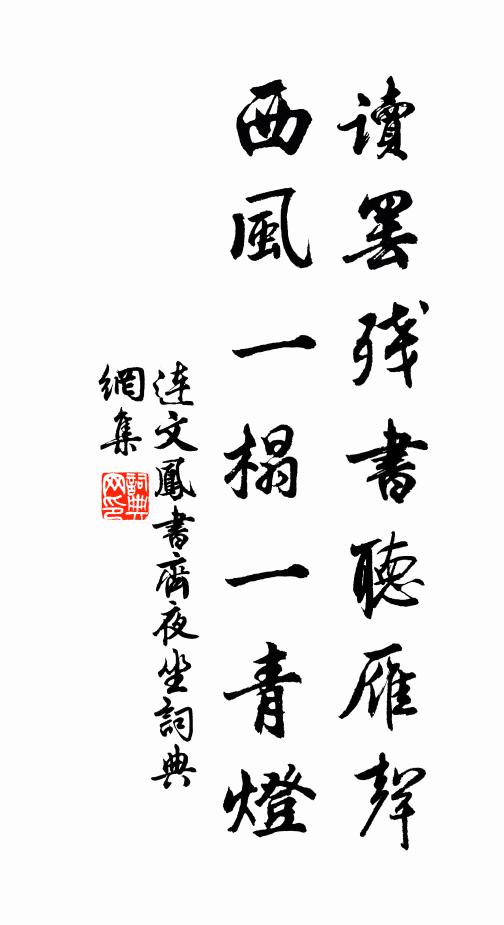 讀罷殘書聽雁聲
西風一榻一青燈
連文鳳書齋夜坐詞典
網集
詞典網印